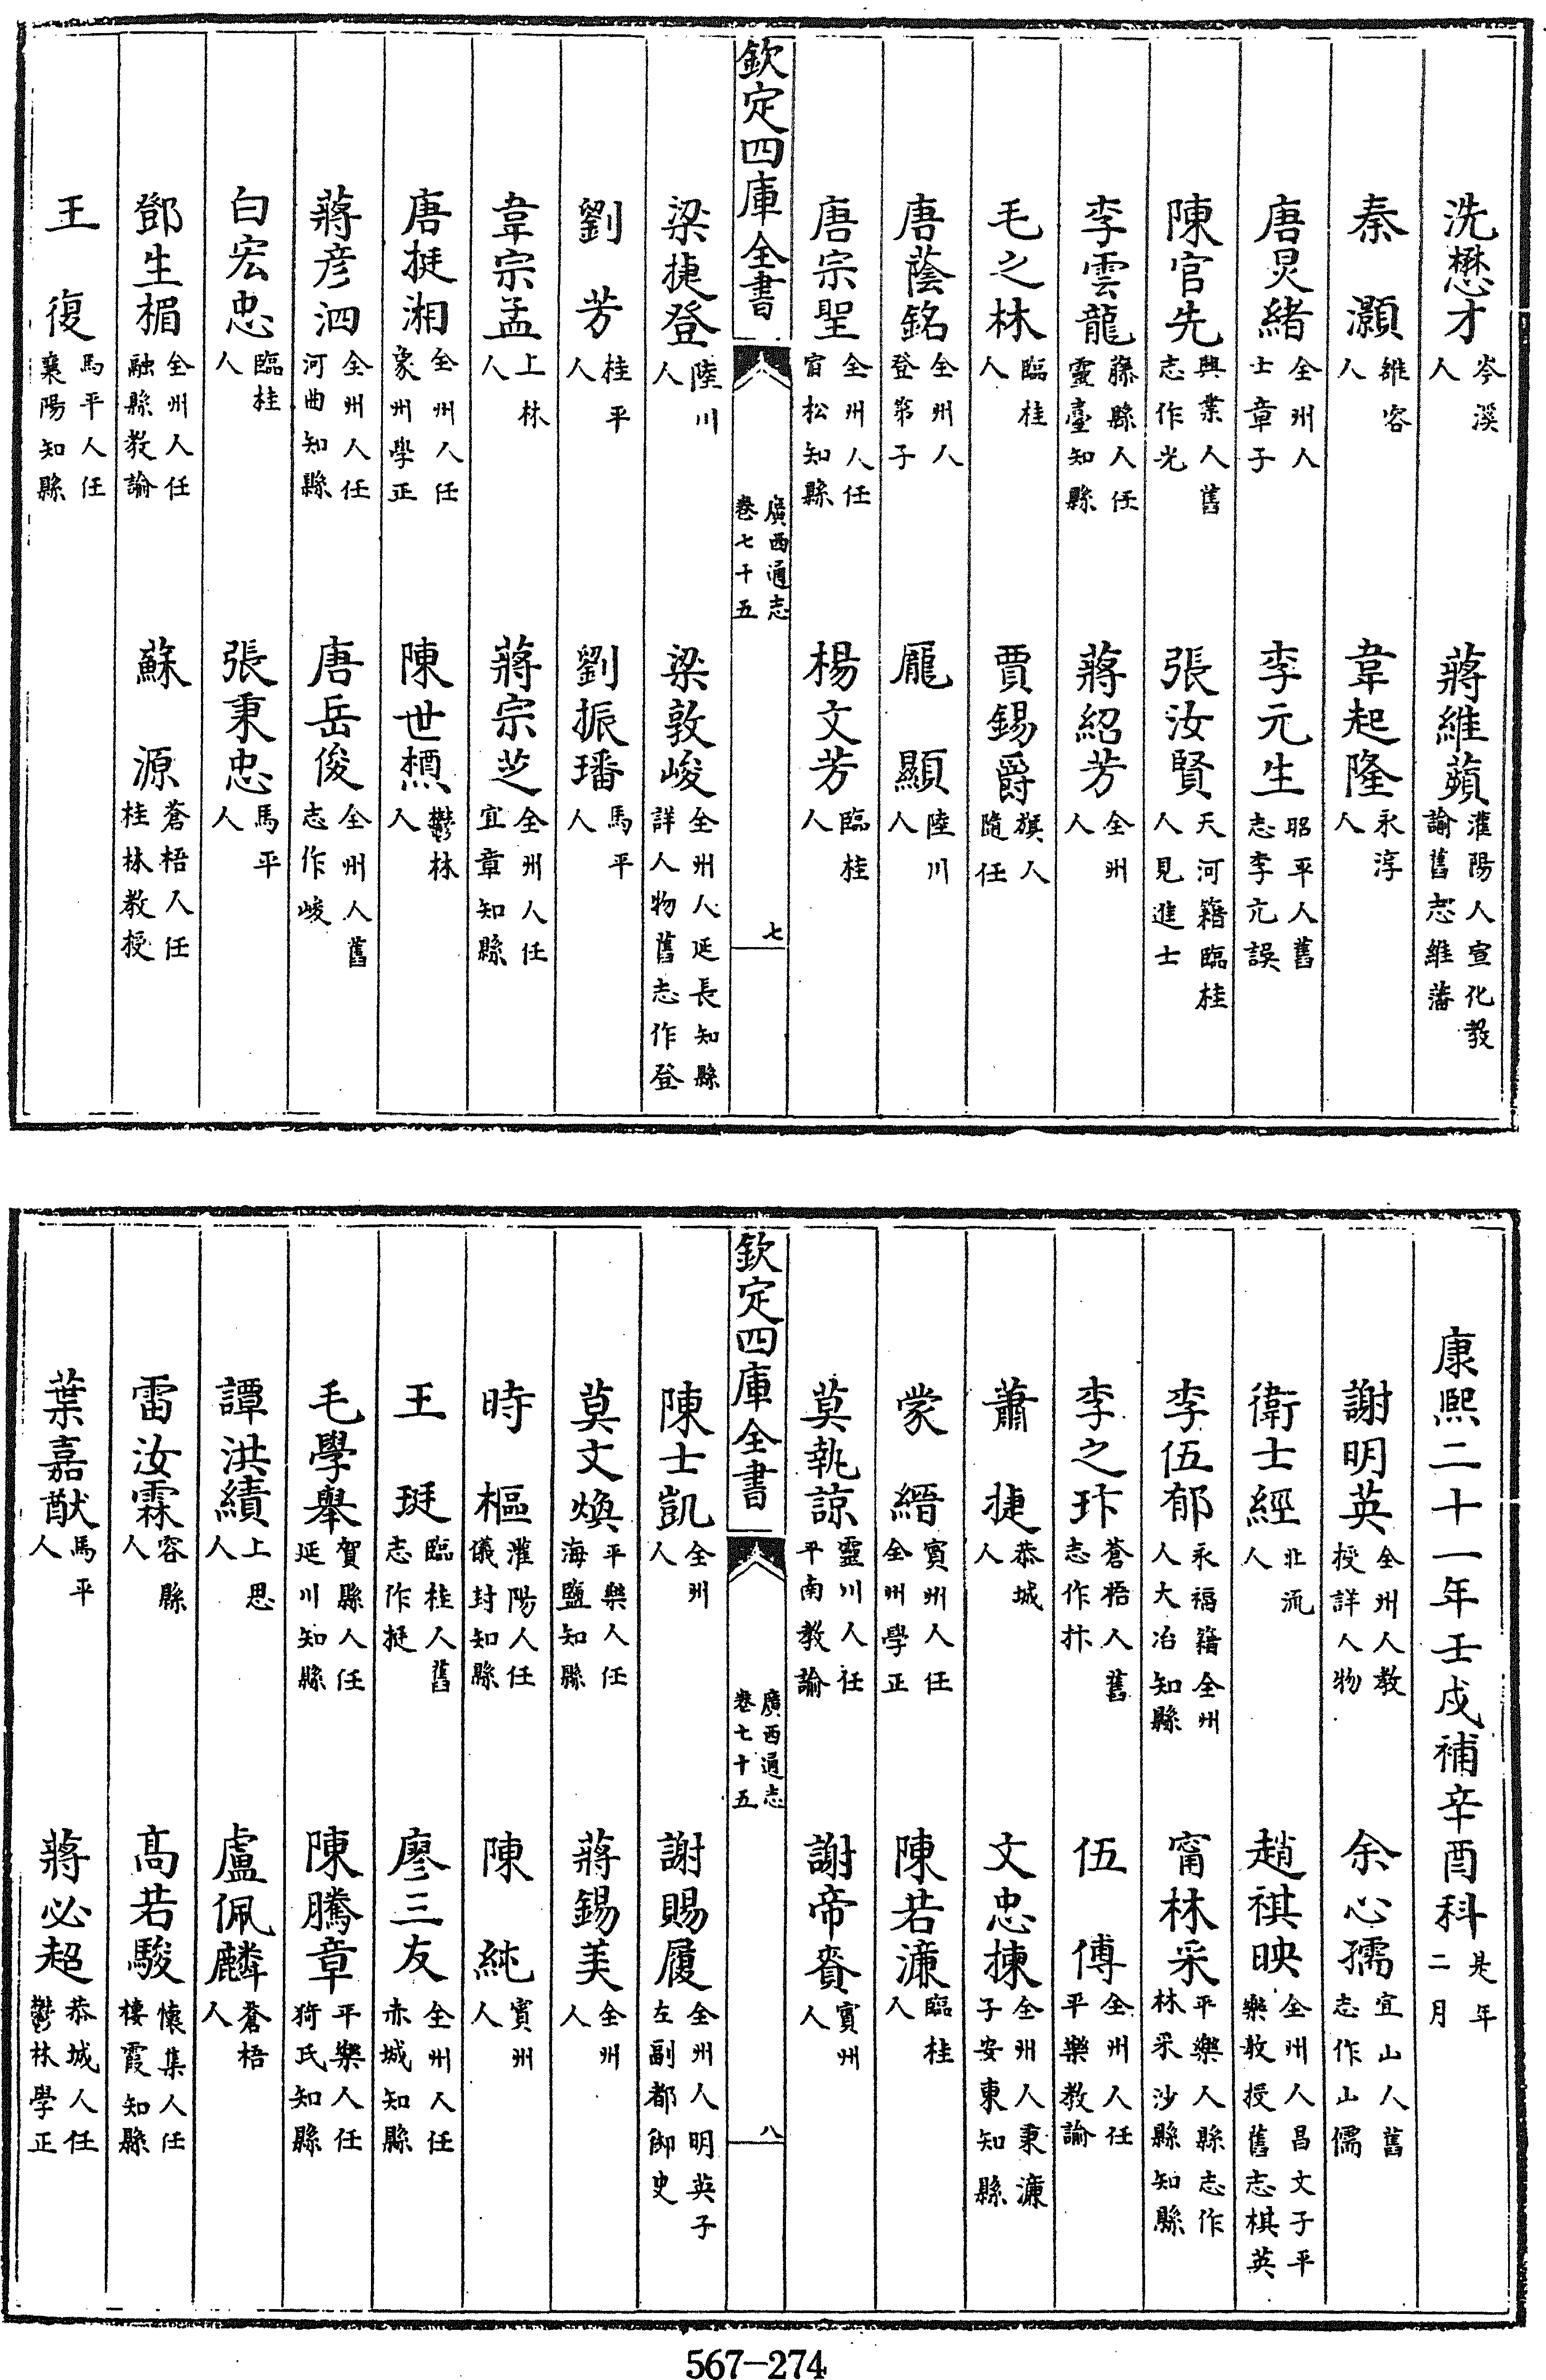 洗懋才岑溪人　蔣維蘋灌陽人宣化教諭舊志維藩
秦灝雒容人　韋起隆永淳人
唐炅緒全州人士章子　李元生昭平人舊志李亢誤
陳官先興業人舊志作光　張汝賢天河籍臨桂人見進士
李雲龍籐縣人任靈臺知縣　蔣紹芳全州人
毛之林臨桂人　賈錫爵旗人隨任
唐蔭銘全州人登第子　龎顯陸川人
唐宗聖全州人任甯松知縣　楊文芳臨桂人
欽定四庫全書　廣西通志卷七十五　七
梁捷登陸川人　梁敦峻全州人延長知縣詳人物舊志作登
劉芳桂平人　劉振璠馬平人
韋宗孟上林人　蔣宗芝全州人任宜章知縣
唐挺湘全州人任象州學正　陳世櫄鬱林人
蔣彥泗全州人任河曲知縣　唐岳俊全州人舊志作峻
白宏忠臨桂人　張秉忠馬平人
鄧生楣全州人任融縣教諭　蘇源蒼梧人任桂林教授
王復馬平人任襄陽知縣
康熙二十一年壬戌補辛酉科是年二月
謝明英全州人教授詳人物　余心孺宜山人舊志作山儒
衛士經北流人　趙祺映全州人昌文子平樂教授舊志棋英
李伍郁永福籍全州人大冶知縣　甯林采平樂人縣志作林釆沙縣知縣
李之玣蒼梧人舊志作抃　伍傅全州人任平樂教諭
蕭捷恭城人　文忠揀全州人秉濂子安東知縣
蒙縉賓州人任全州學正　陳若濂臨桂人
莫執諒靈川人任平南教諭　謝帝賚賓州人
欽定四庫全書　廣西通志卷七十五　八
陳士凱全州人　謝賜履全州人明英子左副都御史
莫文煥平樂人任海鹽知縣　蔣錫美全州人
時樞灌陽人任儀封知縣　陳純賓州人
王珽臨桂人舊志作挺　廖三友全州人任赤城知縣
毛學舉賀縣人任延川知縣　陳騰章平樂人任猗氏知縣
譚洪績上思人　盧佩麟蒼梧人
雷汝霖容縣人　髙若駿懷集人任棲霞知縣
葉嘉猷馬平人　蔣必超恭城人任鬱林學正
567-274